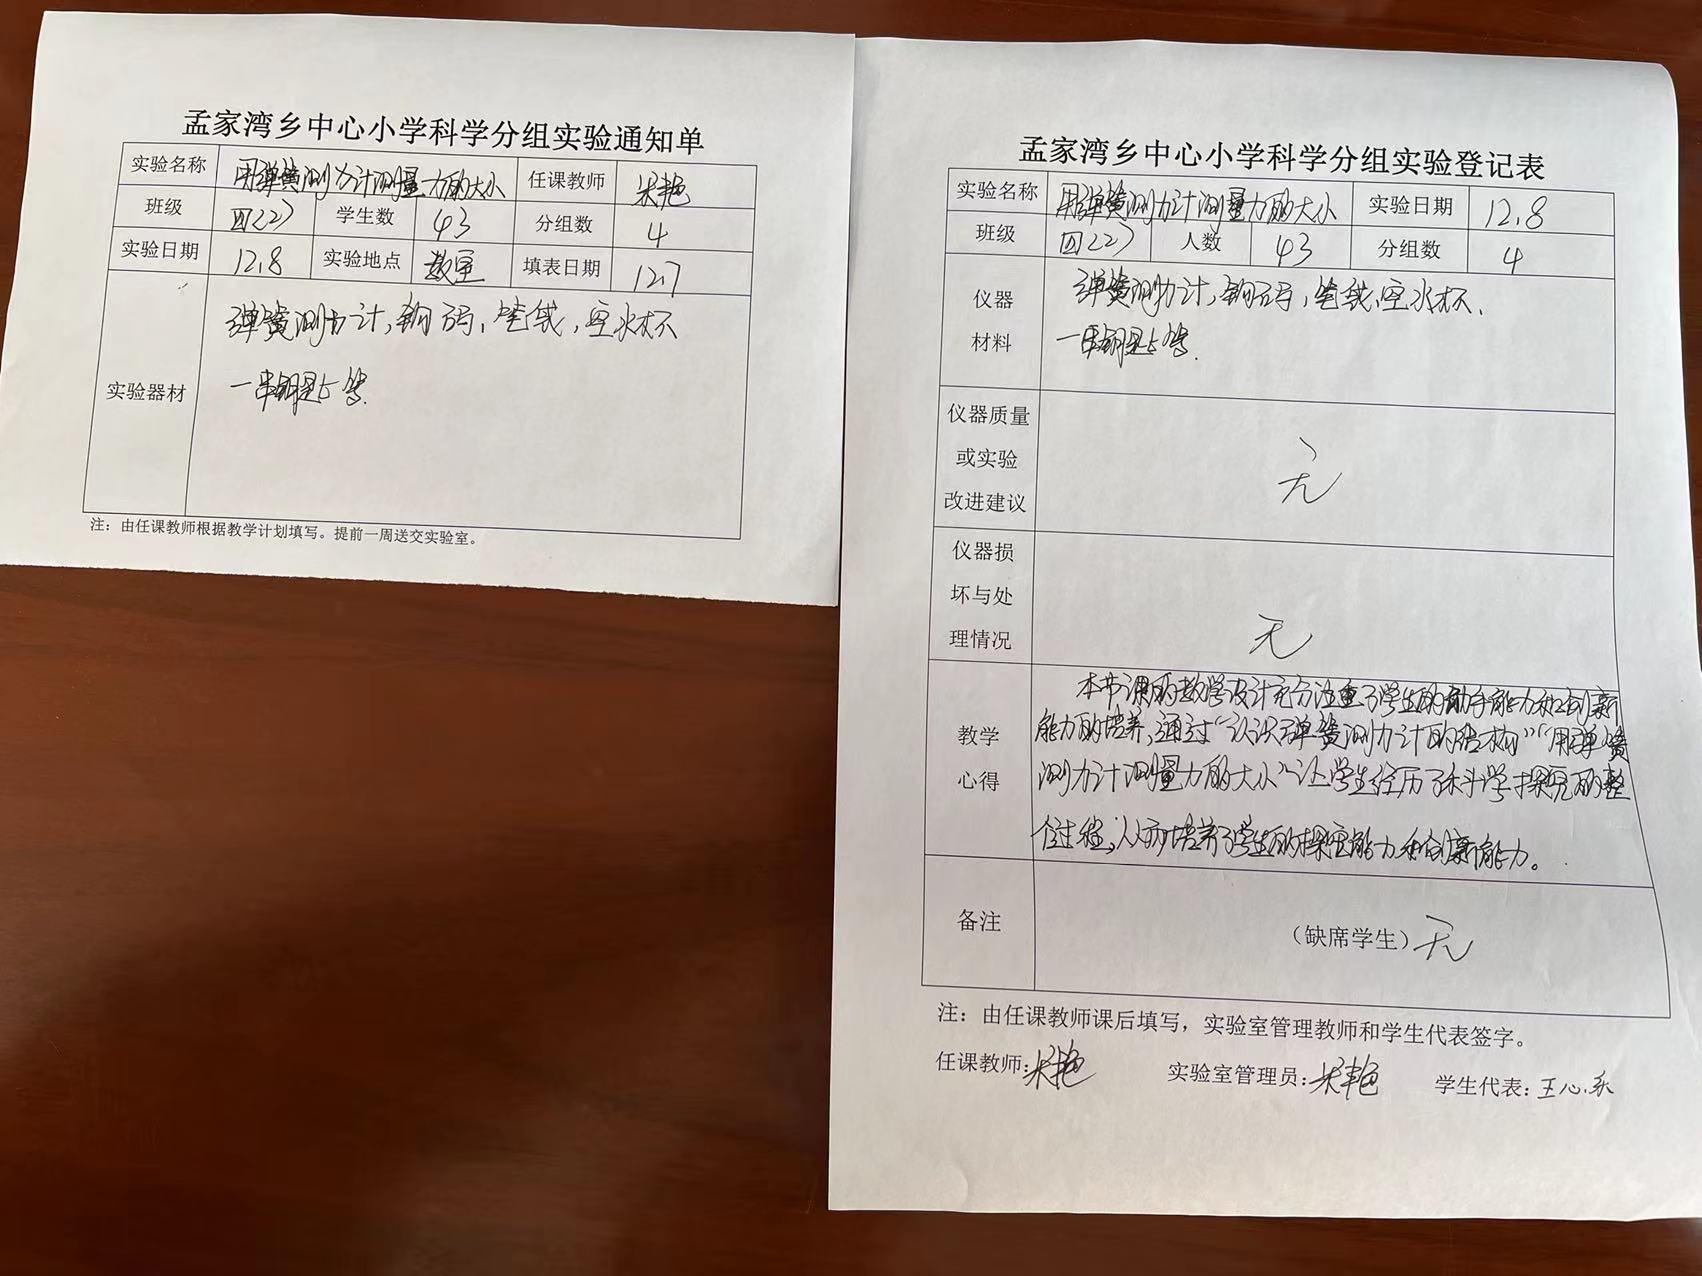 孟家湾乡中心小学科学分组实验通知单
实验名称 用弹簧测力计测量力的大小 任课教师 宋艳
班级 四(2) 学生数 43 分组数 4
实验日期 12.8 实验地点 教室 填表日期 12.7
实验器材 弹簧测力计,钩码,笔袋,空水杯
一串钥匙等.
注:由任课教师根据教学计划填写。提前一周送交实验室。
孟家湾乡中心小学科学分组实验登记表
实验名称 用弹簧测力计测量力的大小 实验日期 12.8
班级 四(2) 人数 43 分组数 4
仪器材料 弹簧测力计,钩码,笔袋,空水杯.
一串钥匙等.
仪器质量或实验改进建议 无
仪器损坏与处理情况 无
教学心得 本节课的教学设计充分注重了学生的动手能力和创新
能力的培养,通过“认识弹簧测力计的结构”“用弹簧
测力计测量力的大小”让学生经历了科学探究的整
个过程,从而培养了学生的探究能力和创新能力。
备注 (缺席学生)无
注:由任课教师课后填写,实验室管理教师和学生代表签字。
任课教师:宋艳 实验室管理员:宋艳 学生代表:王心乐